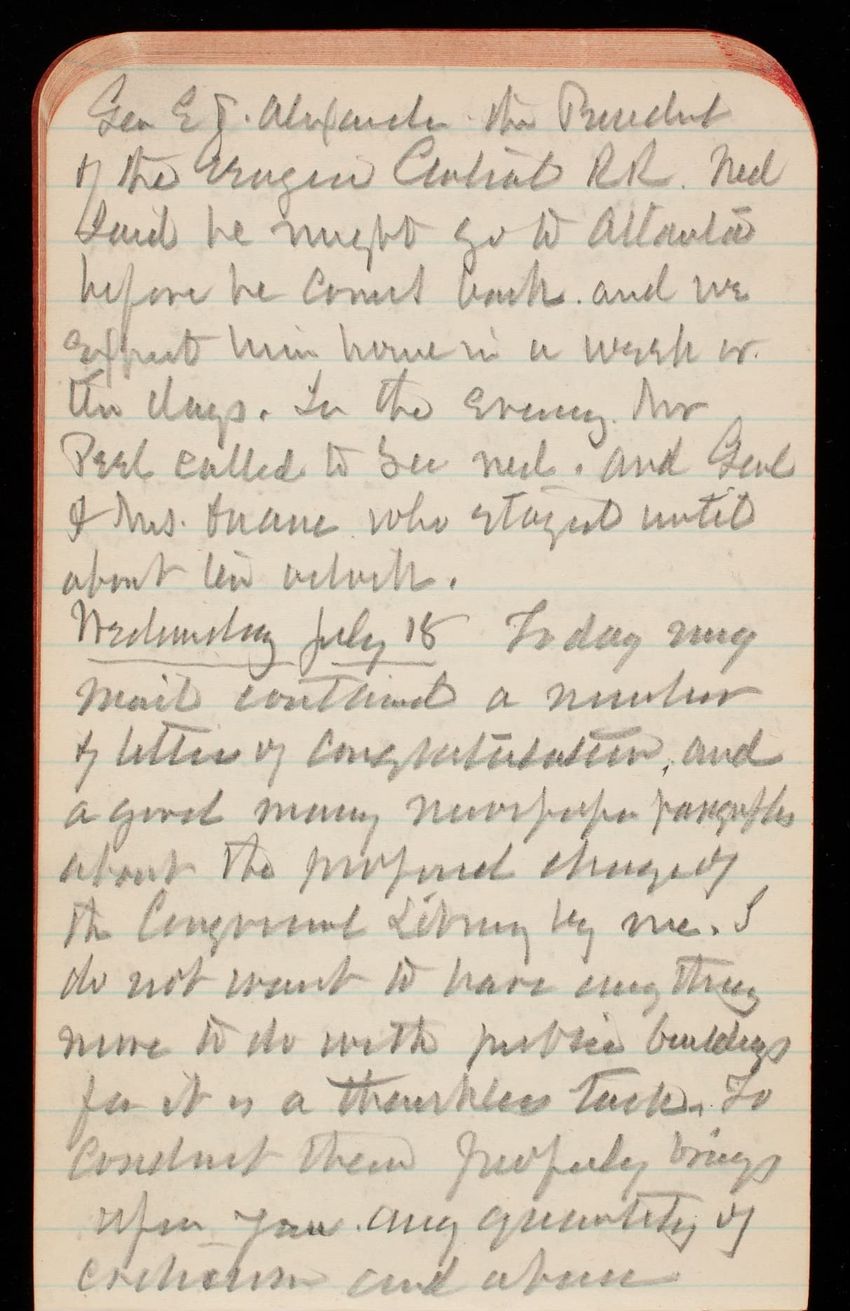 Gen E P. Alexander the President
of the Georgia Central RR. Ned
said he might go to Atlanta
before he comes back. and we
expect him home in a week or
ten days. In the evening Mr
Peel called to see ned. and Genl
& Mrs. Duane who stayed until
about ten oclock.
Wednesday July 18 Today my
mail contained a number
of letters of congratulation, and
a good many newspaper paragraphs
about the proposed charge of
the Congressional Library by me. I
do not want to have any thing
more to do with public buildings
for it is a thankless task. To
conduct them properly brings
upon you any quantity of
criticism and abuse